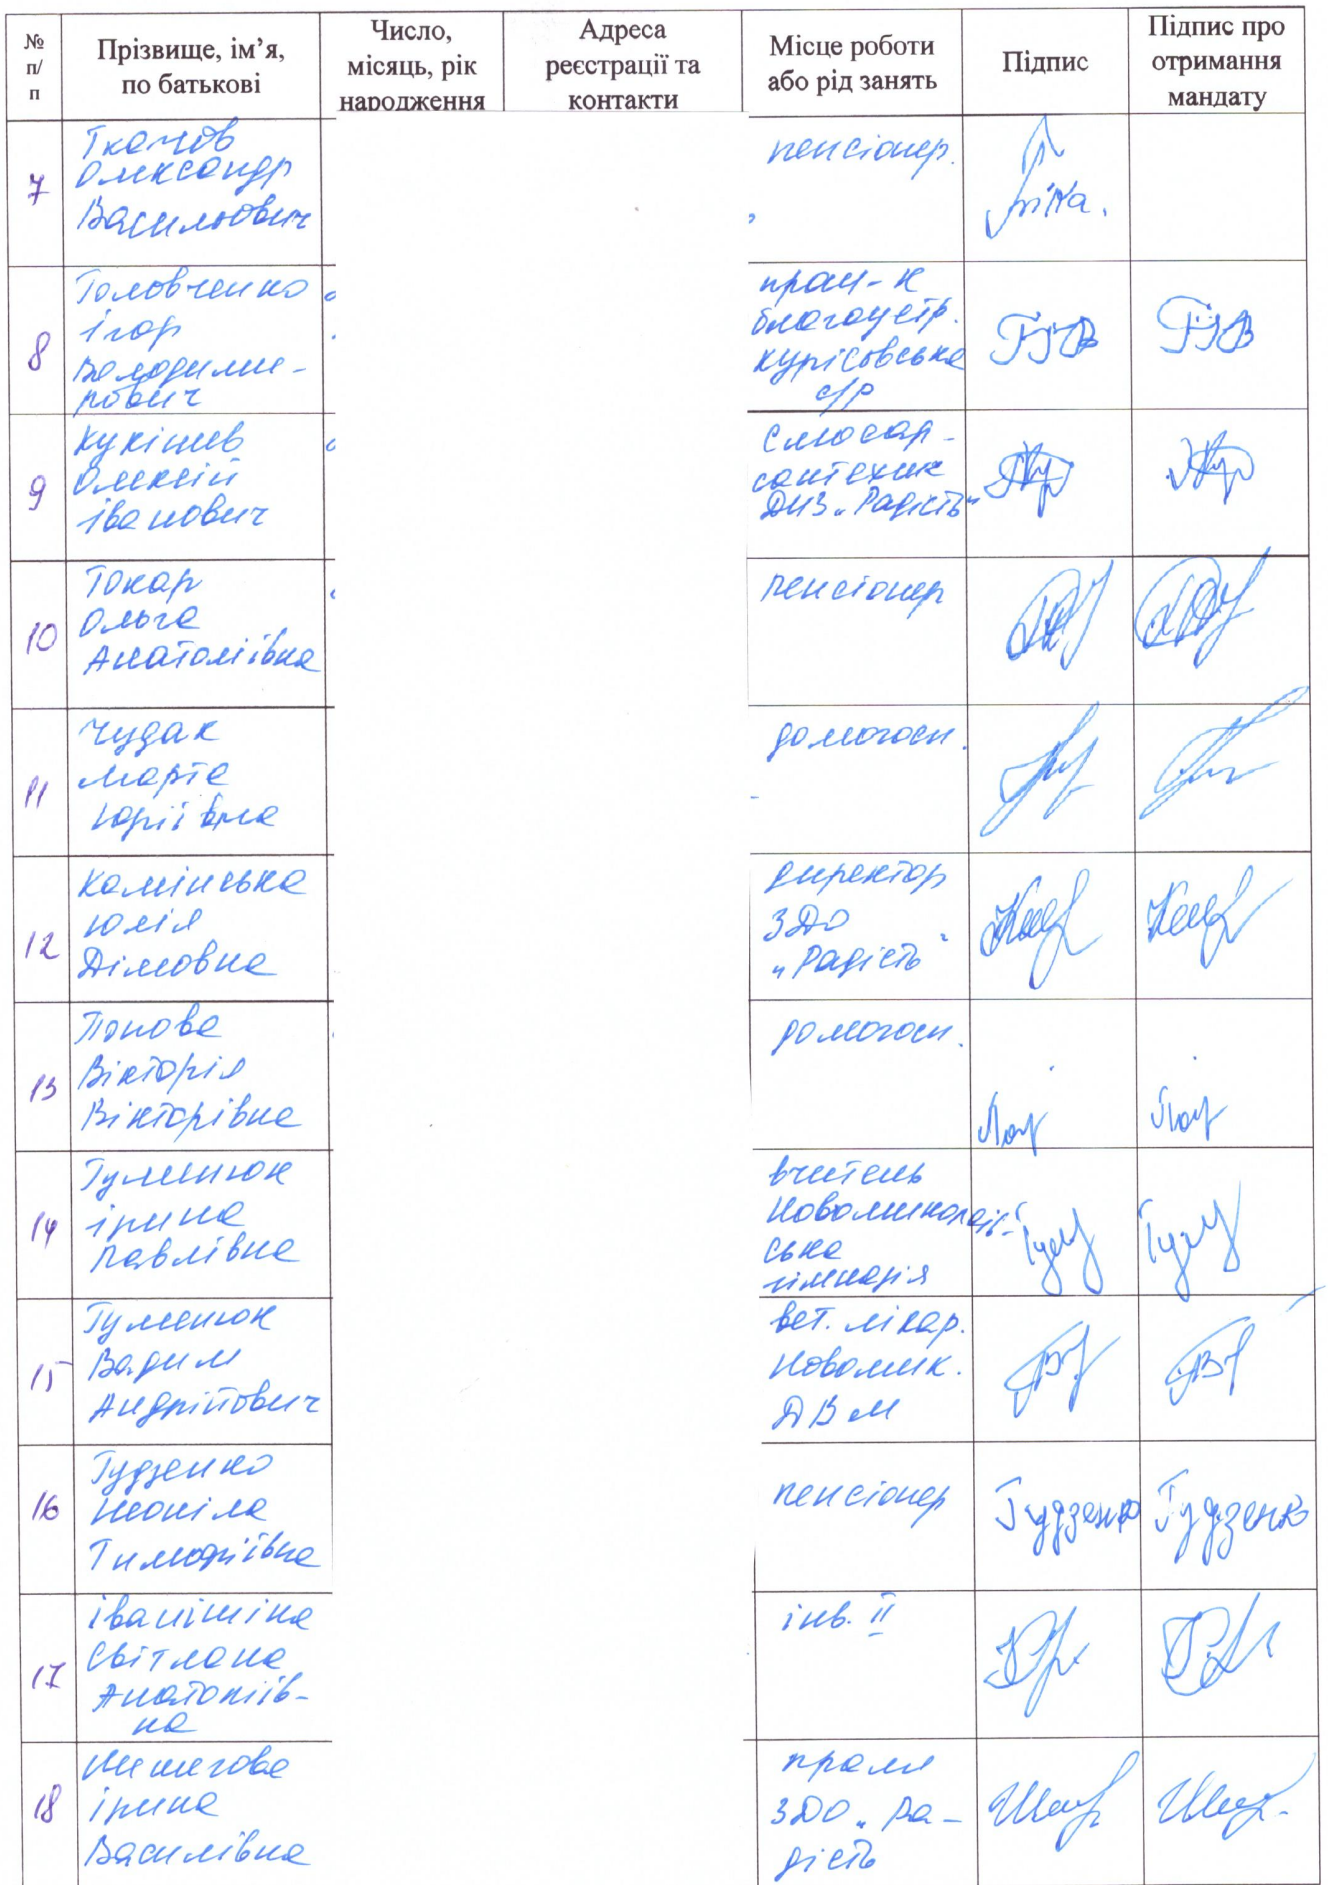 № п/п
Прізвище, ім’я, по батькові
Число, місяць, рік народження
Адреса реєстрації та контакти
Місце роботи або рід занять
Підпис
Підпис про отримання мандату
7
Ткачов
Олександр
Васильович
пенсіонер.
8
Головченко
Ігор
Володими-
рович
прац-к
благоустр.
Курісовська
с/р
9
Кукішев
Олексій
Іванович
Слюсар-
сантехнік
ДНЗ „Радість“
10
Токар
Ольга
Анатоліївна
пенсіонер
11
Чудак
Марта
Юріївна
домогосп.
12
Камінська
Юлія
Дімовна
директор
ЗДО
„Радість“
13
Попова
Вікторія
Вікторівна
домогосп.
14
Гуменюк
Ірина
Павлівна
вчитель
Новомиколаїв-
ська
гімназія
15
Гуменюк
Вадим
Андрійович
вет. лікар.
Новомик.
ДВМ
16
Гудзенко
Неоніла
Тимофіївна
пенсіонер
Гудзенко
Гудзенко
17
Іванішина
Світлана
Анатоліїв-
на
інв. II
18
Ірина
Василівна
ЗДО „Ра-
дість